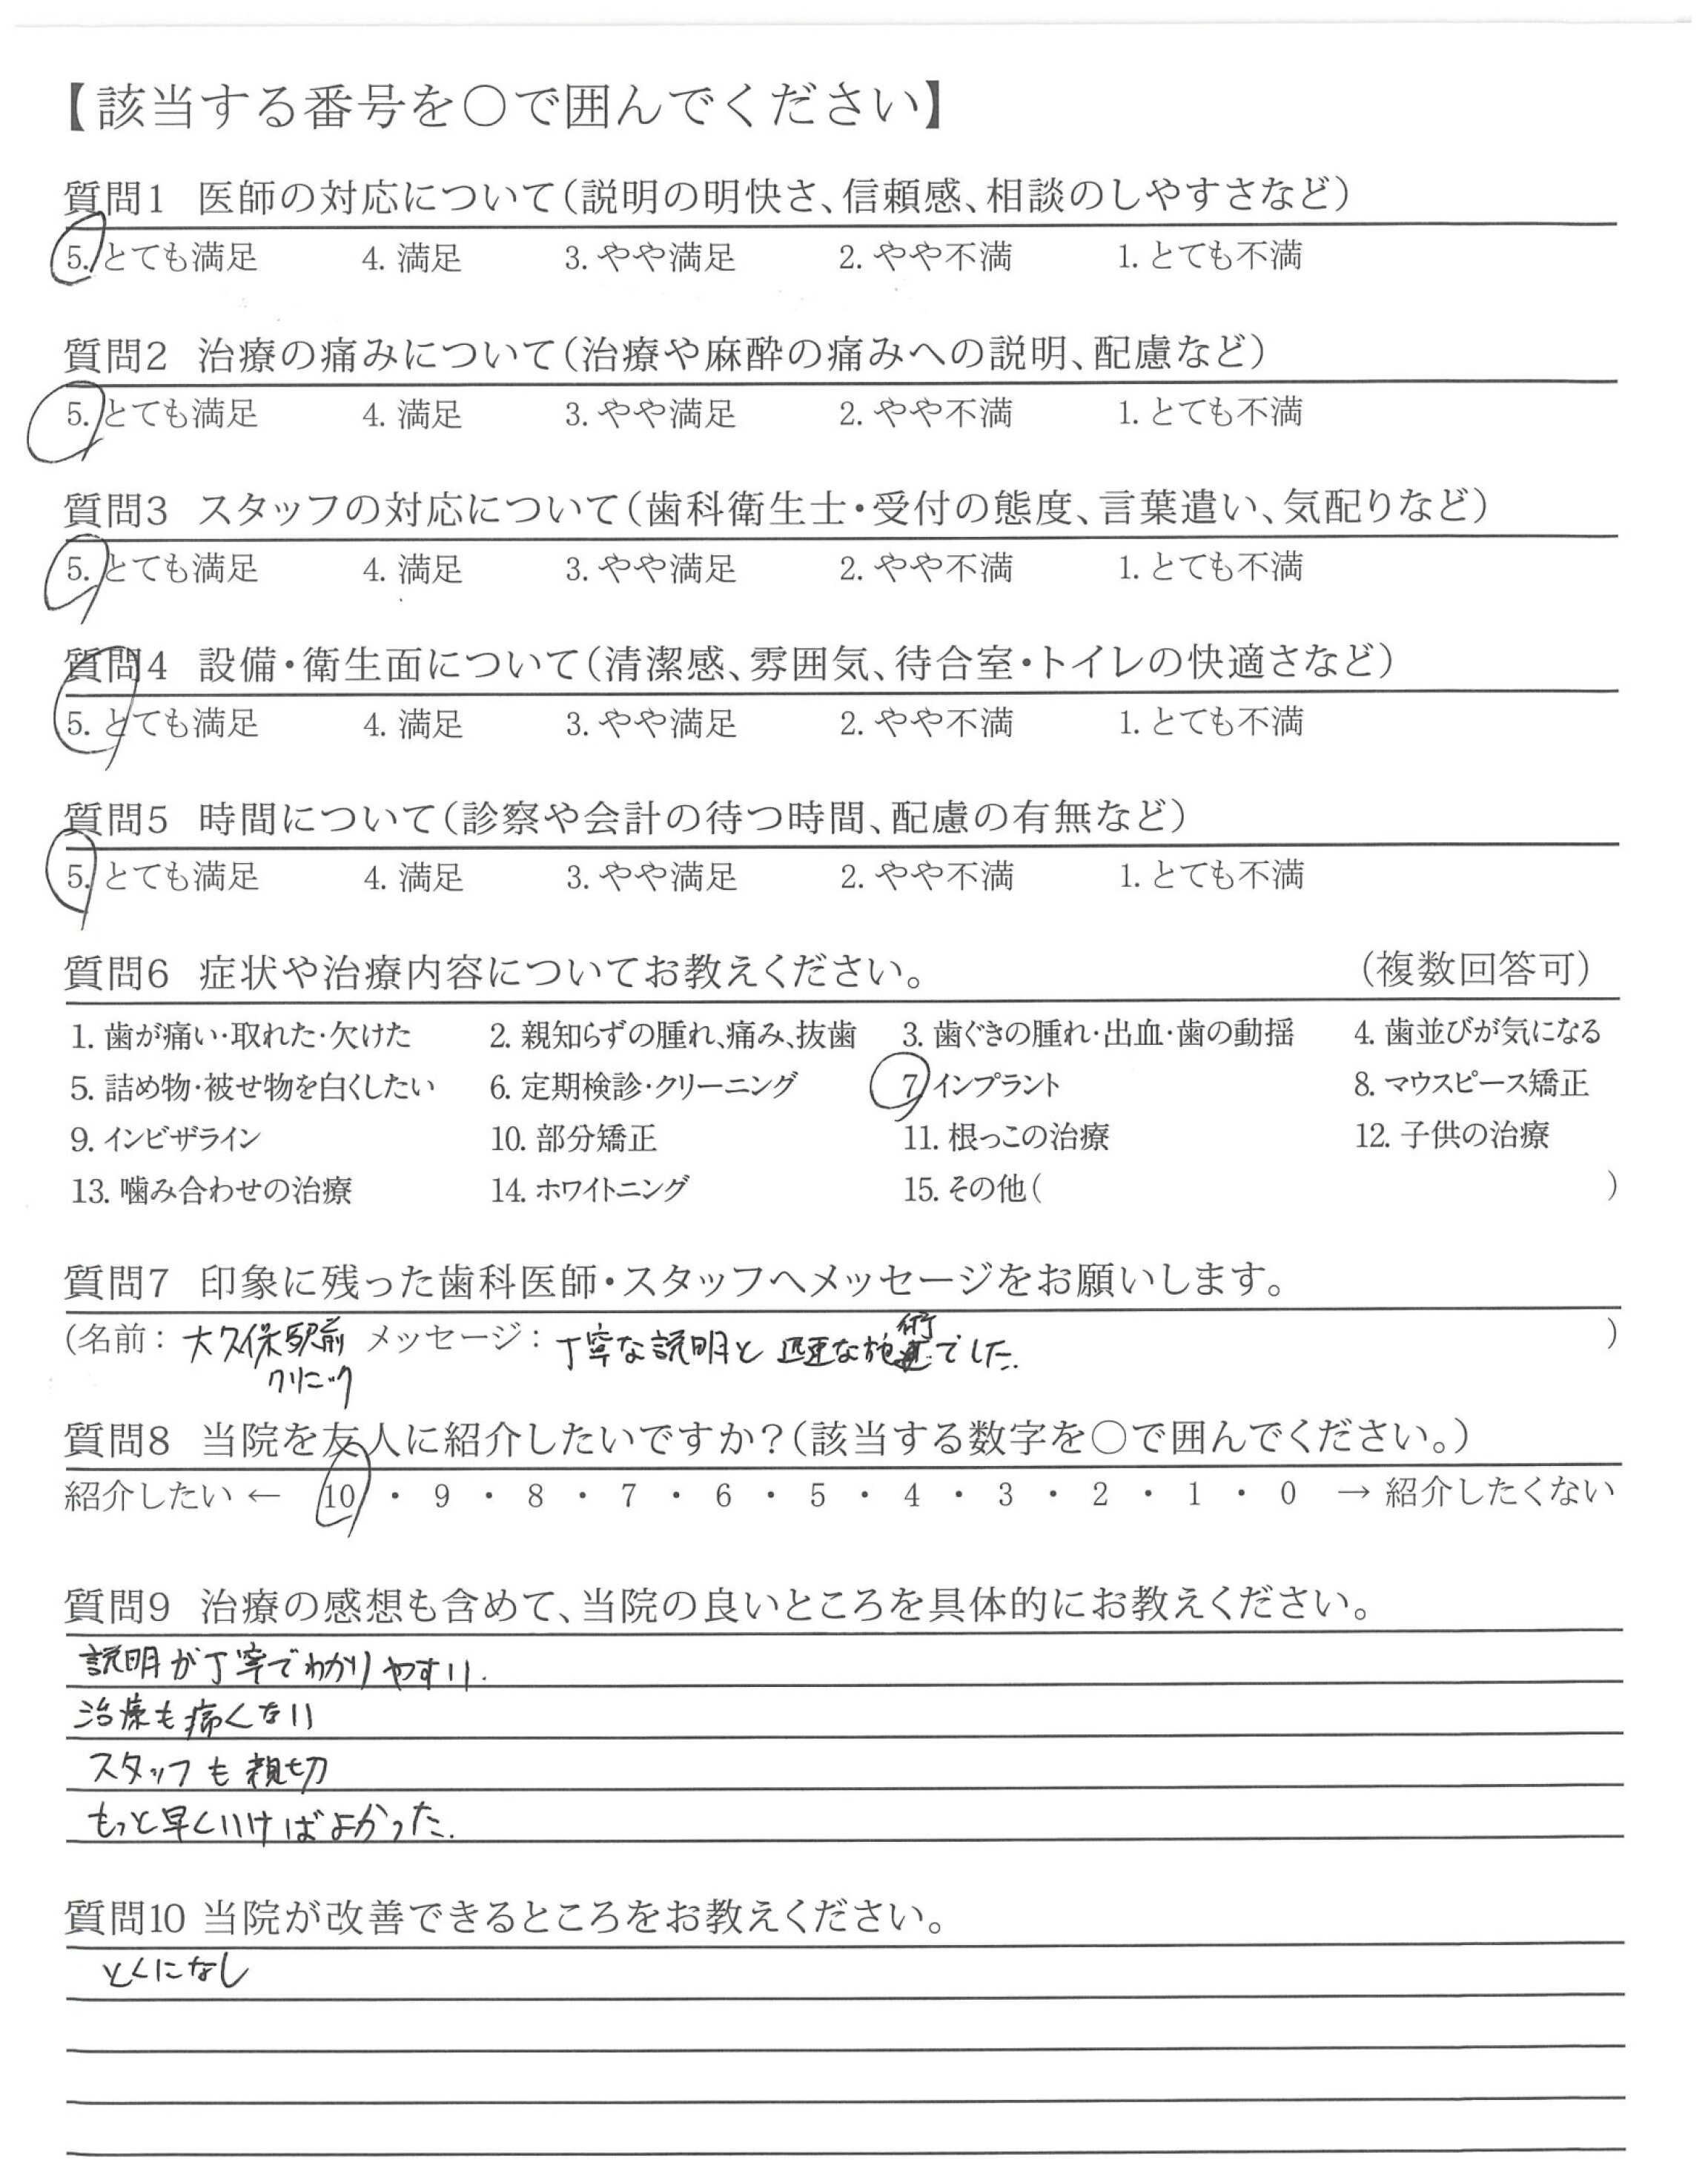 【該当する番号を○で囲んでください】
質問1 医師の対応について(説明の明快さ、信頼感、相談のしやすさなど)
5. とても満足 4. 満足 3. やや満足 2. やや不満 1. とても不満
質問2 治療の痛みについて(治療や麻酔の痛みへの説明、配慮など)
5. とても満足 4. 満足 3. やや満足 2. やや不満 1. とても不満
質問3 スタッフの対応について(歯科衛生士・受付の態度、言葉遣い、気配りなど)
5. とても満足 4. 満足 3. やや満足 2. やや不満 1. とても不満
質問4 設備・衛生面について(清潔感、雰囲気、待合室・トイレの快適さなど)
5. とても満足 4. 満足 3. やや満足 2. やや不満 1. とても不満
質問5 時間について(診察や会計の待つ時間、配慮の有無など)
5. とても満足 4. 満足 3. やや満足 2. やや不満 1. とても不満
質問6 症状や治療内容についてお教えください。 (複数回答可)
1. 歯が痛い・取れた・欠けた 2. 親知らずの腫れ、痛み、抜歯 3. 歯ぐきの腫れ・出血・歯の動揺 4. 歯並びが気になる
5. 詰め物・被せ物を白くしたい 6. 定期検診・クリーニング 7. インプラント 8. マウスピース矯正
9. インビザライン 10. 部分矯正 11. 根っこの治療 12. 子供の治療
13. 噛み合わせの治療 14. ホワイトニング 15. その他( )
質問7 印象に残った歯科医師・スタッフへメッセージをお願いします。
(名前: 大久保駅前 メッセージ: 丁寧な説明と な施術でした. )
クリニック
質問8 当院を友人に紹介したいですか?(該当する数字を○で囲んでください。)
紹介したい ← 10 ・ 9 ・ 8 ・ 7 ・ 6 ・ 5 ・ 4 ・ 3 ・ 2 ・ 1 ・ 0 → 紹介したくない
質問9 治療の感想も含めて、当院の良いところを具体的にお教えください。
説明が丁寧でわかりやすい.
治療も痛くない
スタッフも親切
もっと早くいけばよかった.
質問10 当院が改善できるところをお教えください。
とくになし